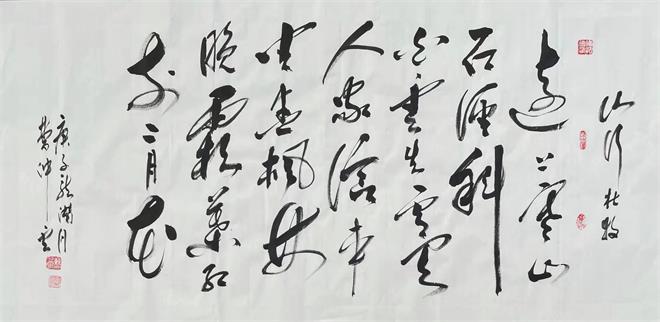 山行 杜牧
遠上寒山
石徑斜
白雲生處有
人家停車
坐愛楓林
晚霜葉紅
於二月花
庚子